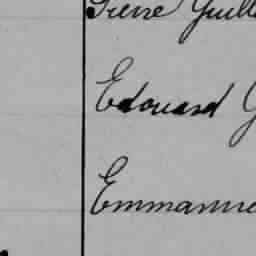 Pierre Guill
Edouard G
Emmanue